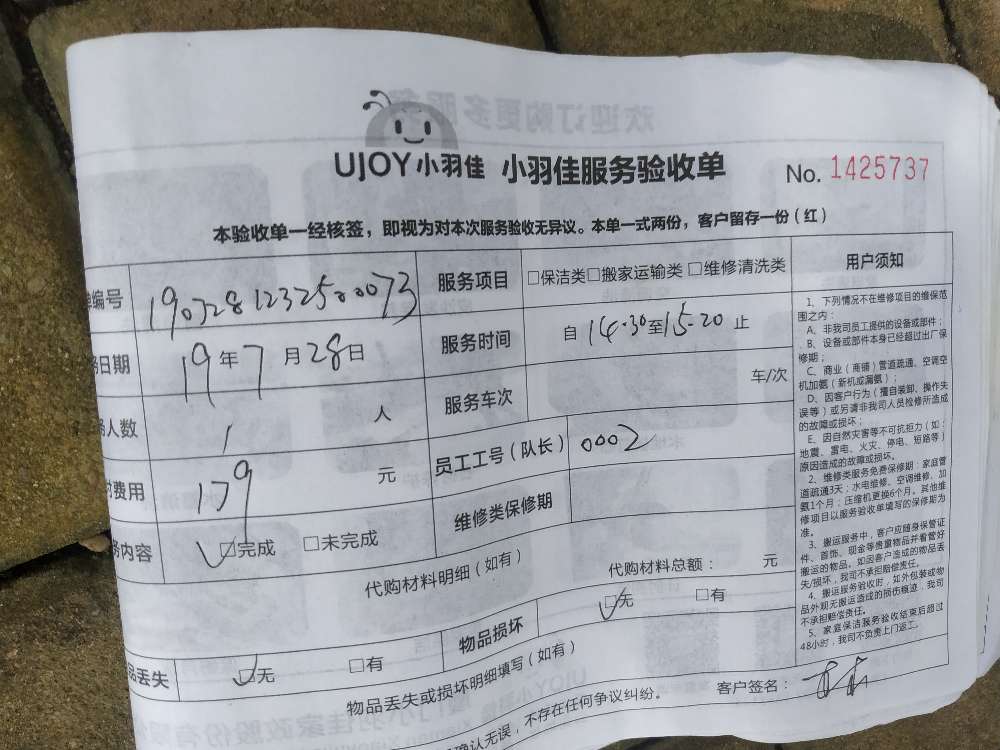 UJOY小羽佳 小羽佳服务验收单 No. 1425737
本验收单一经核签，即视为对本次服务验收无异议。本单一式两份，客户留存一份（红）
编号 190728123250073 服务项目 □保洁类□搬家运输类□维修清洗类
日期 19年7月28日 服务时间 自14.30至15.20止
人数 1 人 服务车次 车/次
费用 179 元 员工工号（队长） 0002
务内容 ☑完成 □未完成 维修类保修期
代购材料明细（如有） 代购材料总额： 元
品丢失 ☑无 □有 物品损坏 ☑无 □有
物品丢失或损坏明细填写（如有）
确认无误，不存在任何争议纠纷。 客户签名：
用户须知
1、下列情况不在维修项目的维保范
围之内：
A、非我司员工提供的设备或部件；
B、设备或部件本身已经超过出厂保
修期；
C、商业（商铺）管道疏通、空调空
机加氨（新机或漏氨）；
D、因客户行为（擅自装卸、操作失
误等）或另请非我司人员检修所造成
的故障或损坏；
E、因自然灾害等不可抗拒力（如：
地震、雷电、火灾、停电、短路等）
原因造成的故障或损坏。
2、维修类服务免费保修期：家庭管
道疏通3天；水电维修、空调维修、加
氨1个月；压缩机更换6个月。其他维
修项目以服务验收单填写的保修期为
准。
3、搬运服务中，客户应随身保管证
件、首饰、现金等贵重物品并看管好
搬运的物品。如因客户造成的物品丢
失/损坏，我司不承担赔偿责任。
4、搬运服务验收时，如外包装或物
品外观无搬运造成的损伤痕迹，我司
不承担赔偿责任。
5、家庭保洁服务验收结束后超过
48小时，我司不负责上门返工。